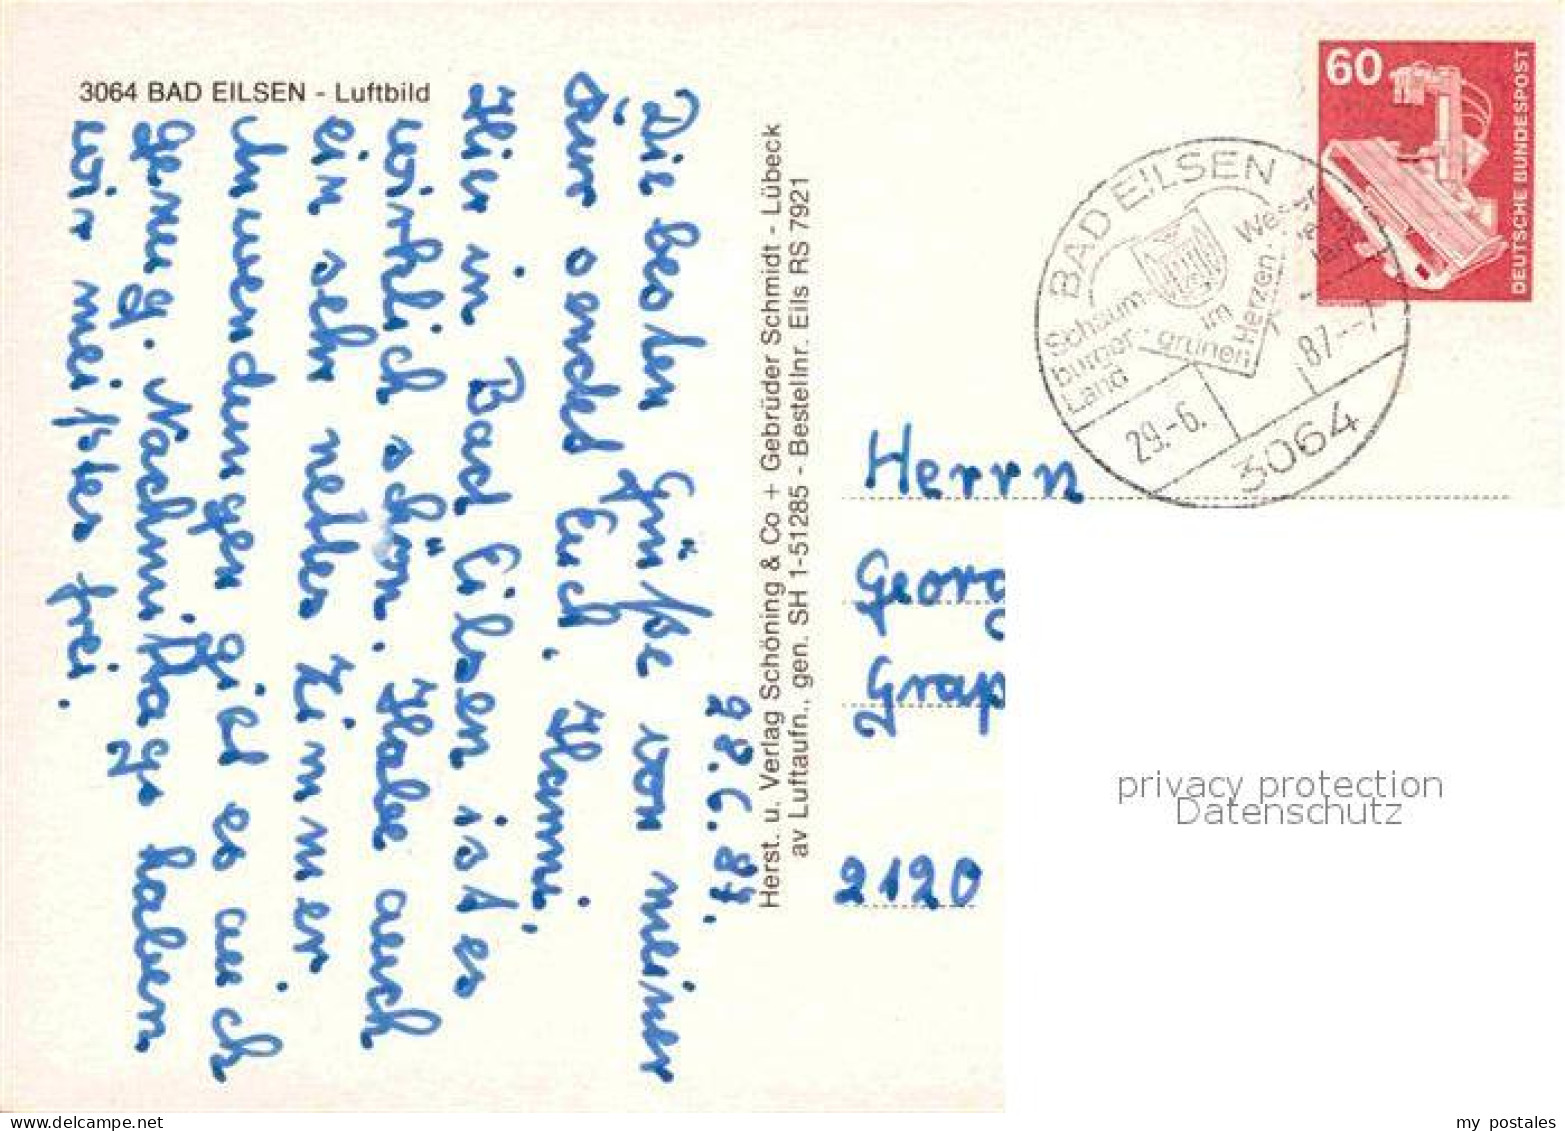 3064 BAD EILSEN - Luftbild
28.6.87.
Die besten Grüße von meiner
Kur sendet Euch, Hanni,
Hier in Bad Eilsen ist es
wirklich schön. Habe auch
ein sehr nettes Zimmer.
Anwendungen giebt es auch
genug. Nachmittags haben
wir meistes frei.
Herst. u. Verlag Schöning & Co + Gebrüder Schmidt - Lübeck
av Luftaufn., gen. SH 1-51285 - Bestellnr. Eils RS 7921
60
DEUTSCHE BUNDESPOST
BAD EILSEN
Schaum-
burger
Land
im
grünen
Herzen
29.-6.
87--7
3064
Herrn
Georg
Grap
2120
privacy protection
Datenschutz
my postales